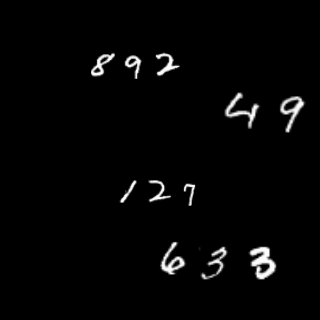 892
49
127
633